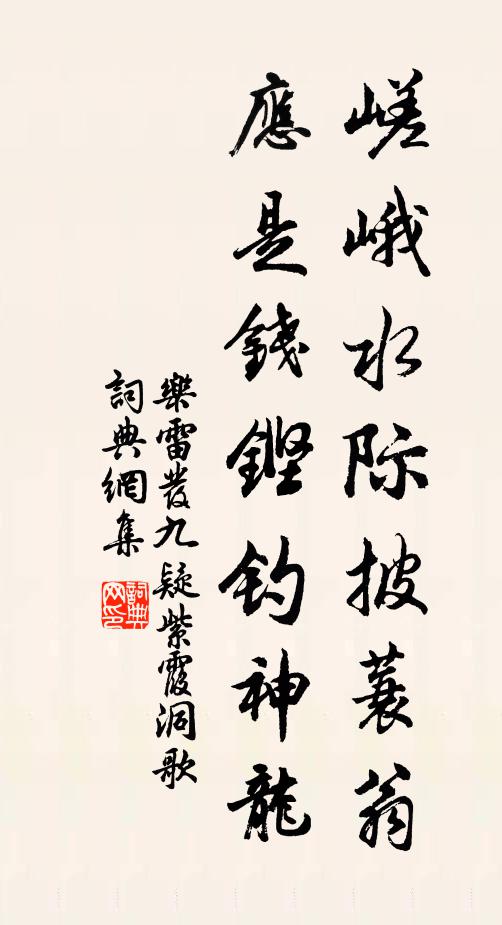 嵯峨水际披蓑翁
應是錢鏗钓神龍
樂雷發九疑紫霞洞歌
詞典網集
詞典网印